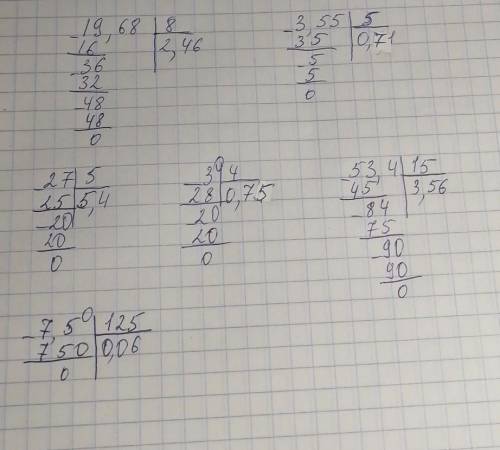 19,68 8
16 2,46
36
32
48
48
0
3,55 5
35 0,71
5
5
0
27 5
25 5,4
20
20
0
30 4
28 0,75
20
20
0
53,4 15
45 3,56
84
75
90
90
0
7,50 125
750 0,06
0